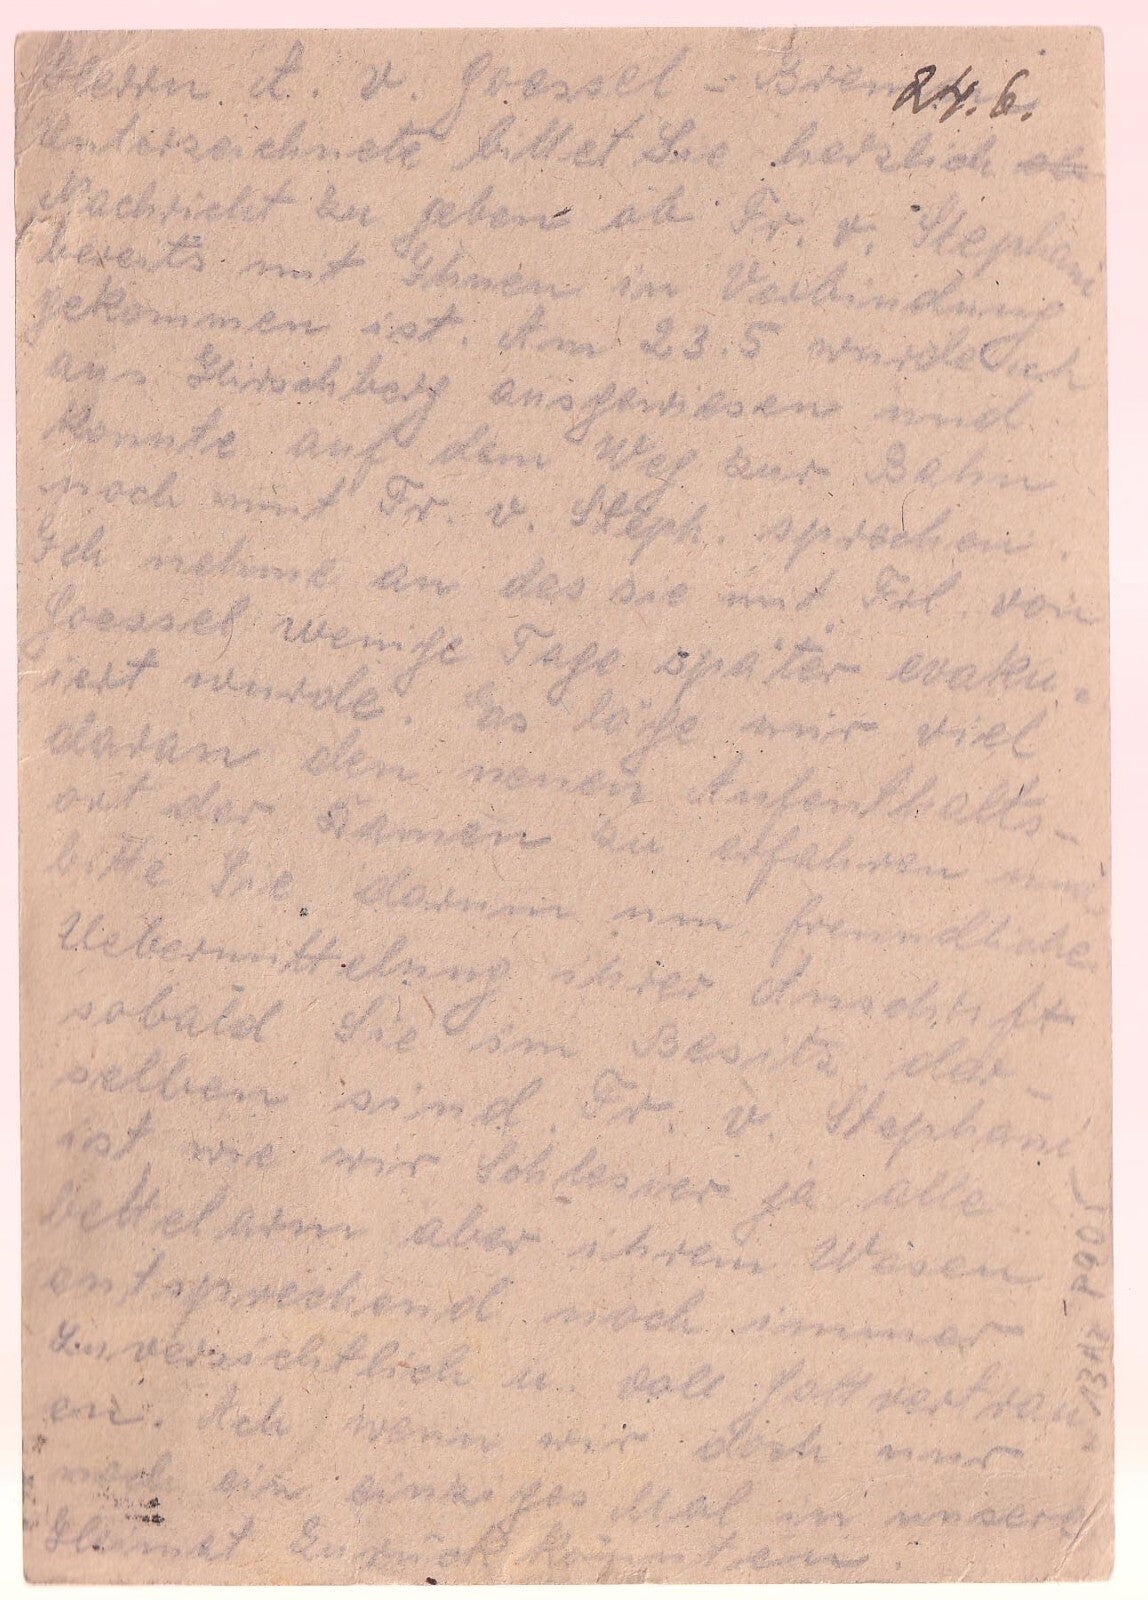 Herrn A. v. Goessel - Bremen
24.6.
Unterzeichnete bittet Sie herzlich
Nachricht zu geben ob Fr. v. Stephani
bereits mit Ihnen in Verbindung
gekommen ist. Am 23.5 wurde ich
aus Hirschberg ausgewiesen und
konnte auf dem Weg zur Bahn
noch mit Fr. v. Steph. sprechen.
Ich nehme an das sie mit Frl. von
Goessel wenige Tage später evaku-
iert wurde. Es läge mir viel
daran den neuen Aufenthalts-
ort der Damen zu erfahren und
bitte Sie darum um freundliche
Uebermittelung ihrer Anschrift
sobald Sie im Besitz der-
selben sind. Fr. v. Stephani
ist wie wir Schlesier ja alle
bettelarm aber ihrem Wesen
entsprechend noch immer
zuversichtlich u. voll Gottvertrau-
en. Ach wenn wir doch nur
noch ein einziges Mal in unsere
Heimat zurück könnten.